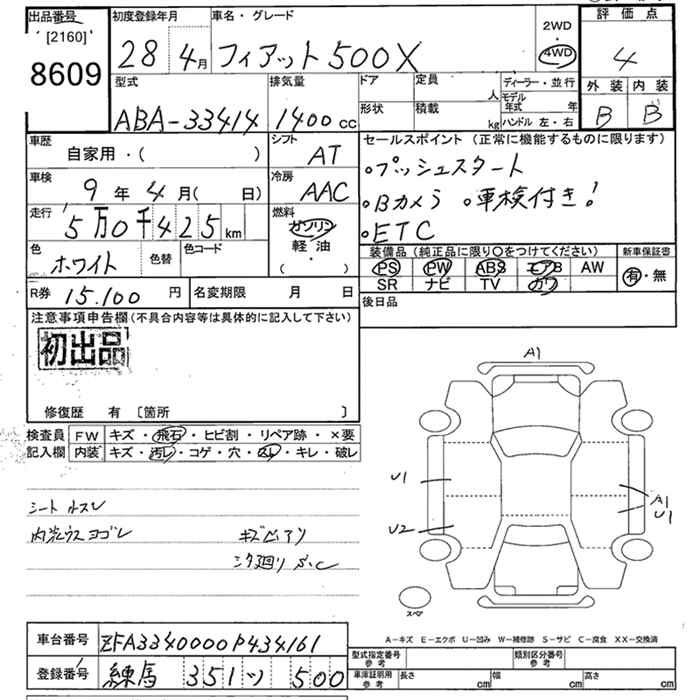 出品番号
[2160]
8609
初度登録年月
28 4月
車名・グレード
フィアット500X
2WD
4WD
評価点
4
外装 内装
B B
型式
ABA-33414
排気量
1400cc
ドア
形状
定員 人
積載 kg
ディーラー・並行
モデル年式 年
ハンドル 左・右
車歴
自家用・( )
シフト
AT
車検
9年4月( 日)
冷房
AAC
走行
5万0千425km
燃料
ガソリン
軽油
( ・ )
色
ホワイト
色替
色コード
R券 15.100円
名変期限 月 日
セールスポイント(正常に機能するものに限ります)
・プッシュスタート
・Bカメラ ・車検付き!
・ETC
装備品(純正品に限り○をつけてください)
PS PW ABS エアB AW
SR ナビ TV カワ
新車保証書
有・無
後日品
注意事項申告欄(不具合内容等は具体的に記入して下さい)
初出品
修復歴 有 [箇所 ]
検査員記入欄
FW キズ・飛石・ヒビ割・リペア跡・×要
内装 キズ・汚レ・コゲ・穴・スレ・キレ・破レ
シートスレ
内装ウスヨゴレ
A1
U1
U2
A1
U1
スペア
A-キズ E-エクボ U-凹み W-補修跡 S-サビ C-腐食 XX-交換済
車台番号 ZFA3340000P434161
登録番号 練馬 351 ツ 500
型式指定番号 参考
類別区分番号 参考
車庫証明用 参考
長さ cm 幅 cm 高さ cm